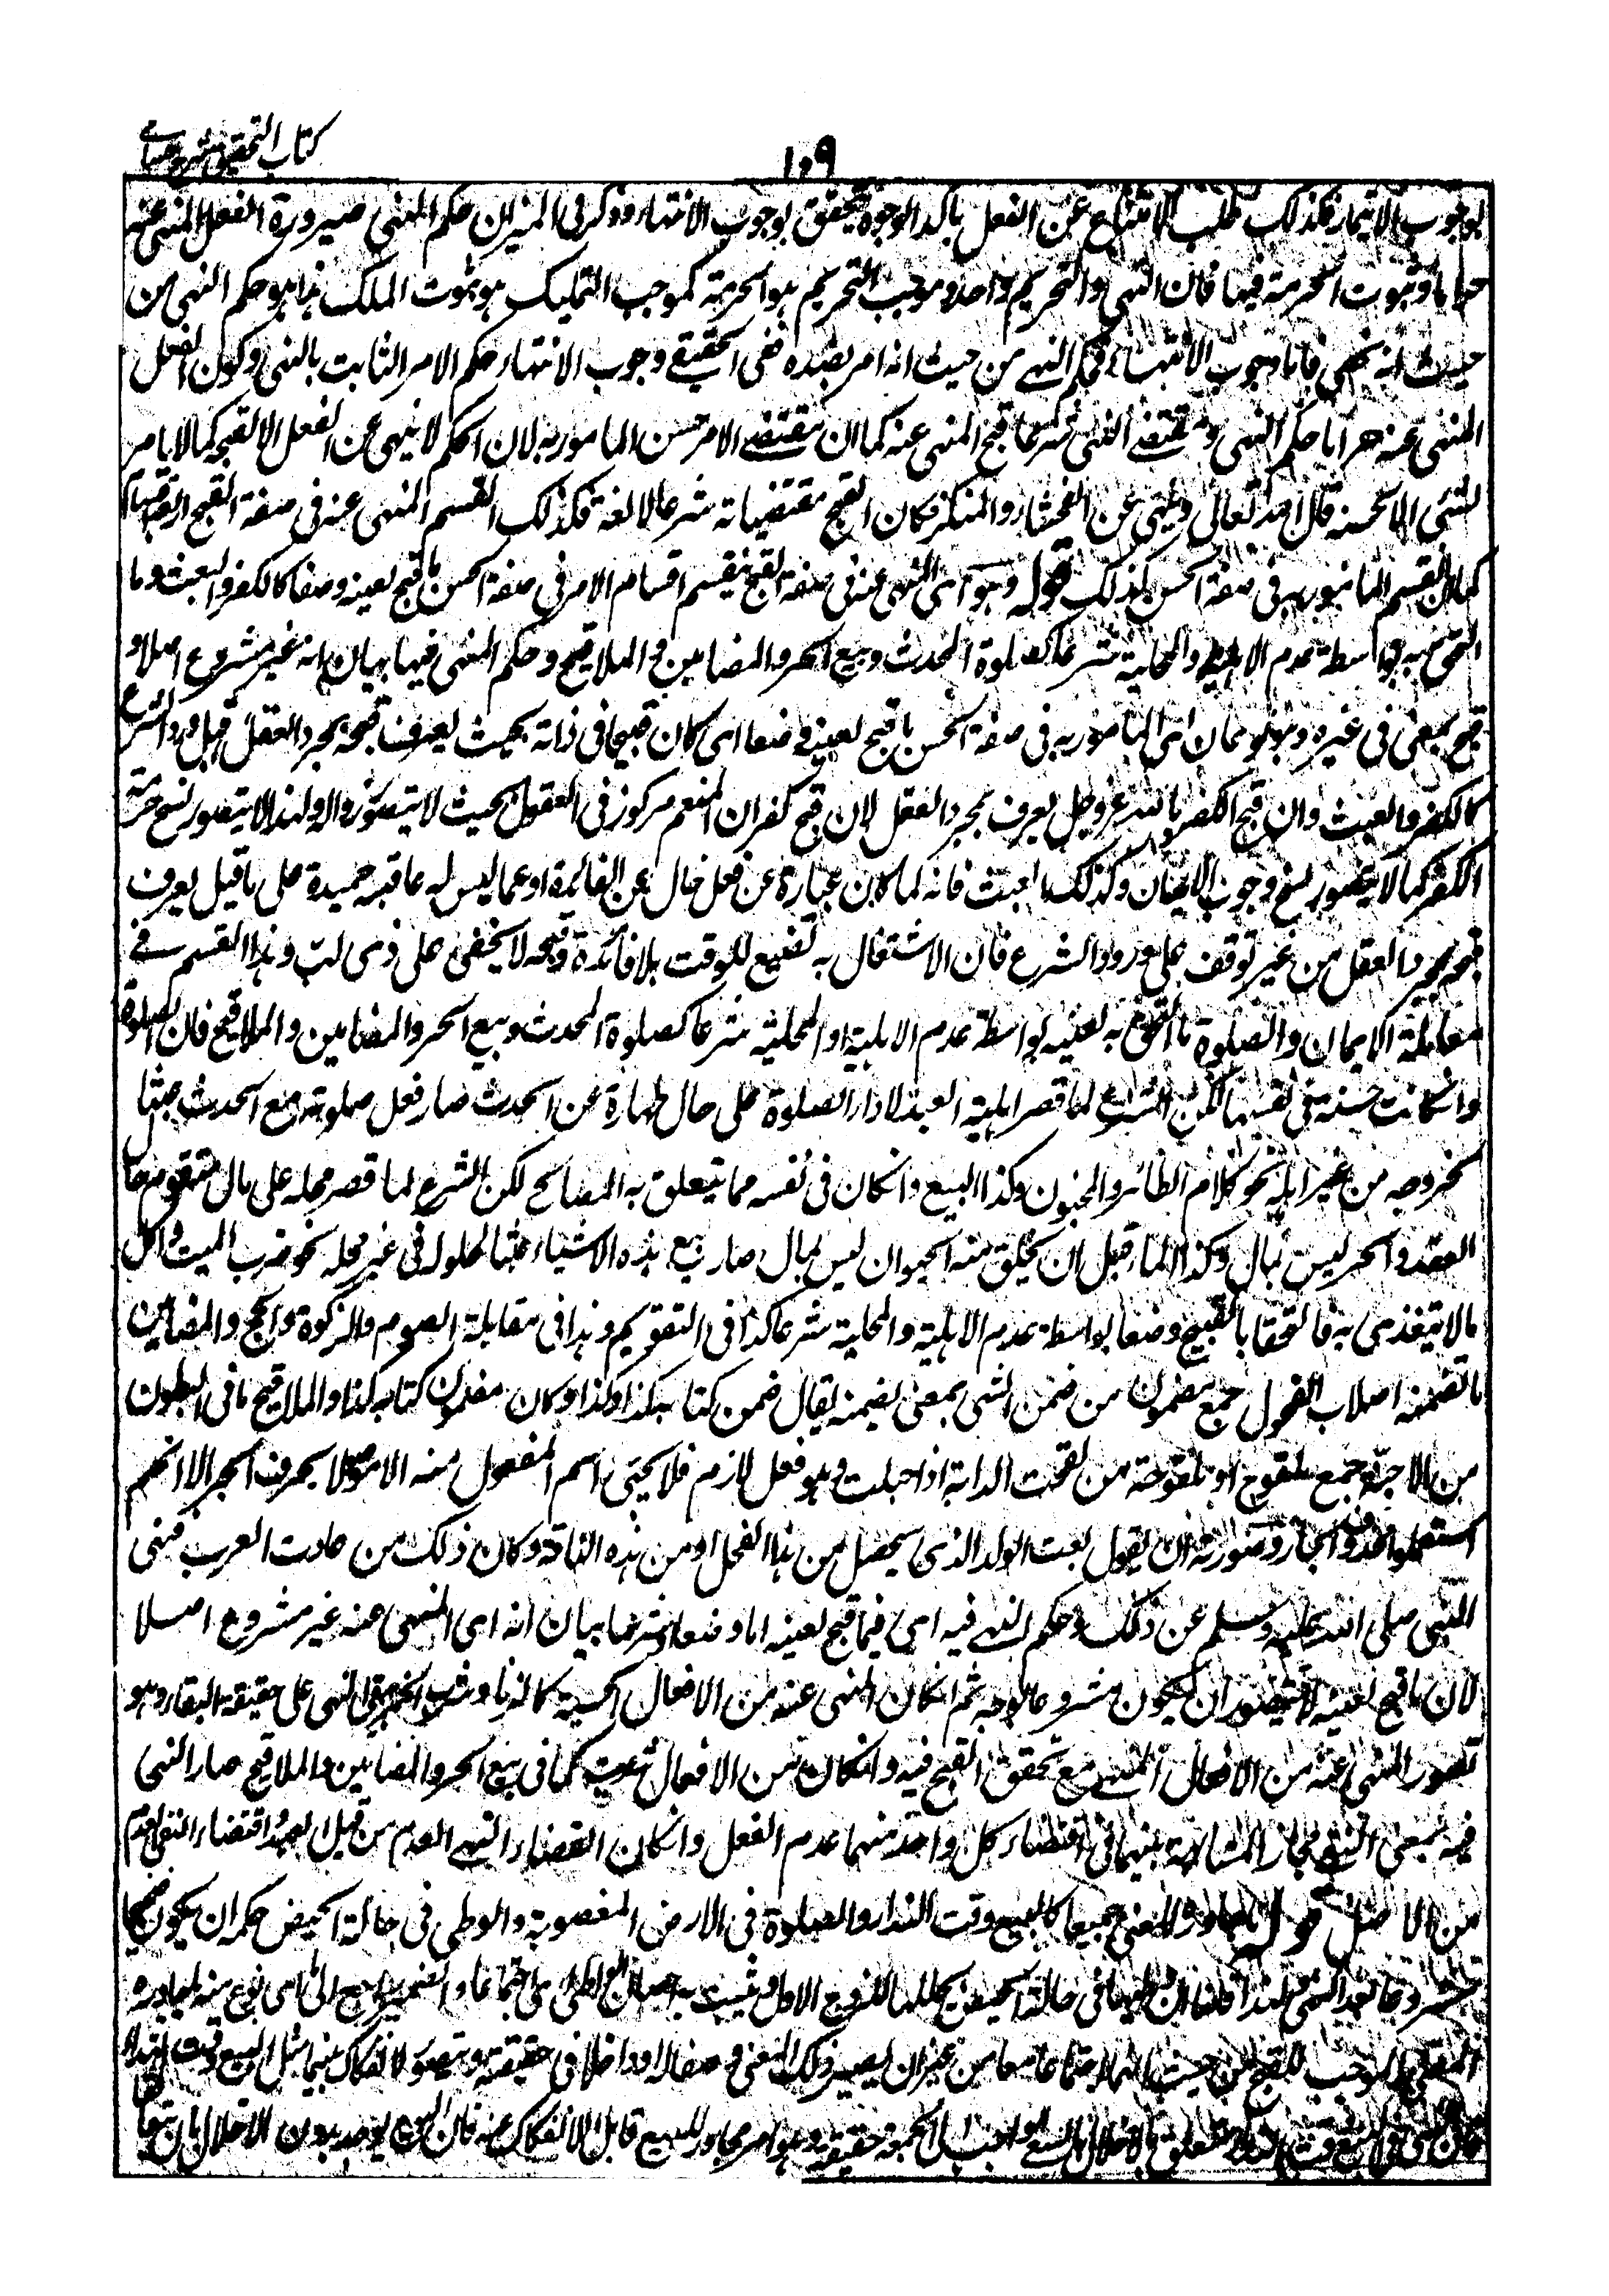 كتاب التحقيق شرح حسامے
١٠٩
لوجوب الايتمار فكذلك طلب الامتناع عن الفعل بآكد الوجوه يحقق لوجوب الانتهاء وذكر فى الميزان حكم النهى صيرورة الفعل المنهى عنه
حراما وثبوت الحرمة فيها فان النهى والتحريم واحد وموجب التحريم هو الحرمة كموجب التمليك هو ثبوت الملك هذا هو حكم النهى من
حيث انه نهى فاما وجوب الانتهاء فحكم النهى من حيث انه امر بضده ففى الحقيقة وجوب الانتهاء حكم الامر الثابت بالنهى وكون الفعل
المنهى عنه حراما حكم النهى ومقتضے النهى شرعا قبح المنهى عنه كما ان مقتضے الامر حسن المامور به لان الحكيم لا ينهى عن الفعل الا لقبحه كما لا يامر
الشئ الا لحسنه قال الله تعالى وينهى عن الفحشاء والمنكر فكان القبح من مقتضياته شرعا لا لغة فكذلك القسم المنهى عنه فى صفة القبح
كما انقسم المامور به فى صفة الحسن كذلك قوله وهو اى النهى عنه فى صفة القبح ينقسم اقسام الامر فى صفة الحسن ما قبح لعينه وصفا كالكفر والعبث وما
التحق به بواسطة عدم الاهلية والمحلية شرعا كصلوة المحدث وبيع الحر والمضامين والملاقيح وحكم النهى فيها بيان انه غير مشروع اصلا و
قبح لمعنى فى غيره وهو نوعان اى المامور به فى صفة الحسن ما قبح لعينه وضعا اى كان قبيحا فى ذاته بحيث يعرف قبحه بمجرد العقل قبل ورود الشرع
كالكفر والعبث وان قبح الكفر بالله عز وجل يعرف بمجرد العقل لان قبح كفران المنعم مركوز فى العقول بحيث لا يتصور زواله ولهذا لا يتصور نسخ حرمة
الكفر كما لا يتصور نسخ وجوب الايمان وكذلك العبث فانه لما كان عبارة عن فعل خال عن الفائدة او عما ليس له عاقبة حميدة على ما قيل يعرف
قبحه بمجرد العقل من غير توقف على ورود الشرع فان الاشتغال به تضييع للوقت بلا فائدة وقبحه لا يخفى على ذى لبّ وهذا القسم فے
مقابلة الايمان والصلوة ما التحق به لعينه بواسطة عدم الاهلية او المحلية شرعا كصلوة المحدث وبيع الحر والمضامين والملاقيح فان الصلوة
وانكانت حسنة فى نفسها لكن الشرع لما قصر اهلية العبد لاداء الصلوة على حال طهارة عن الحدث صار فعل صلوته مع الحدث عبثا
لخروجه من غير اهله نحو كلام الطائر والمجنون وكذا البيع وانكان فى نفسه مما يتعلق به المصالح لكن الشرع لما قصر محله على مال متقوم حال
العقد والحر ليس بمال وكذا الماء قبل ان يخلق منه الحيوان ليس بمال صار بيع هذه الاشياء عبثا لحلوله فى غير محله نحو ضرب الميت واكل
ما لا يتغذى به فالتحقا بالقبيح وضعا بواسطة عدم الاهلية والمحلية شرعا كذا فى التقويم وهذا فى مقابلة الصوم والزكوة والحج والمضامين
ما تضمنه اصلاب الفحول جمع مضمون من ضمن الشئ بمعنى تضمنه يقال ضمن كتابه كذا وكذا وكان مضمون كتابه كذا والملاقيح ما فى البطون
من الاجنّة جمع ملقوح او ملقوحة من لقحت الدابة اذا حبلت وهو فعل لازم فلا يجئ اسم المفعول منه الا موصلا بحرف الجر الا انهم
استعملوا محذوف الجار وصورته ان يقول بعت الولد الذى سيحصل من هذا الفحل او من هذه الناقة وكان ذلك من عادت العرب فنهى
النبى صلى الله عليه وسلم عن ذلك وحكم النهے فيه اى فيما قبح لعينه اما وضعا او شرعا بيان انه اى المنهى عنه غير مشروع اصلا
لان ما قبح لعينه لا يتصور ان يكون مشروعا لوجه ثم انكان المنهى عنه من الافعال الحسية كالزنا وشرب الخمر بقى النهى على حقيقة البقاء وهو
تصور المنهى عنه من الافعال مع تحقق القبح فيه وانكان من الافعال الشرعية كما فى بيع الحر والمضامين والملاقيح صار النهى
فيه بمعنى النفى مجازا لمشابهة بينهما فى اقتضاء كل واحد منهما عدم الفعل وانكان اقتضاء النهے العدم من قبل العبد واقتضاء النفى عدم
من الاصل قوله ما جاوره لمعنى جميعا كالبيع وقت النداء والصلوة فى الارض المغصوبة والوطى فى حالة الحيض حكمه ان يكون صحيحا
مشروعا بعد النهى ولهذا قلنا ان وطيها فى حالة الحيض يحللها للزوج الاول ويثبت به احصان الواطى اى اجتماعا والضمير راجع الى اى نوع منه لمجاورة
المعنى الموجب للقبح من حيث انهما اجتمعا معا من غير ان يصير ذلك المعنى وصفا له او داخلا فى حقيقته ويتصور الانفكاك بينهما مثل البيع وقت النداء
فان النهى فى البيع وقت النداء متعلق بالاخلال بالسعى الواجب الى الجمعة حقيقة وهو امر مجاور للبيع قابل الانفكاك عنه فان البيع يوجد بدون الاخلال بان